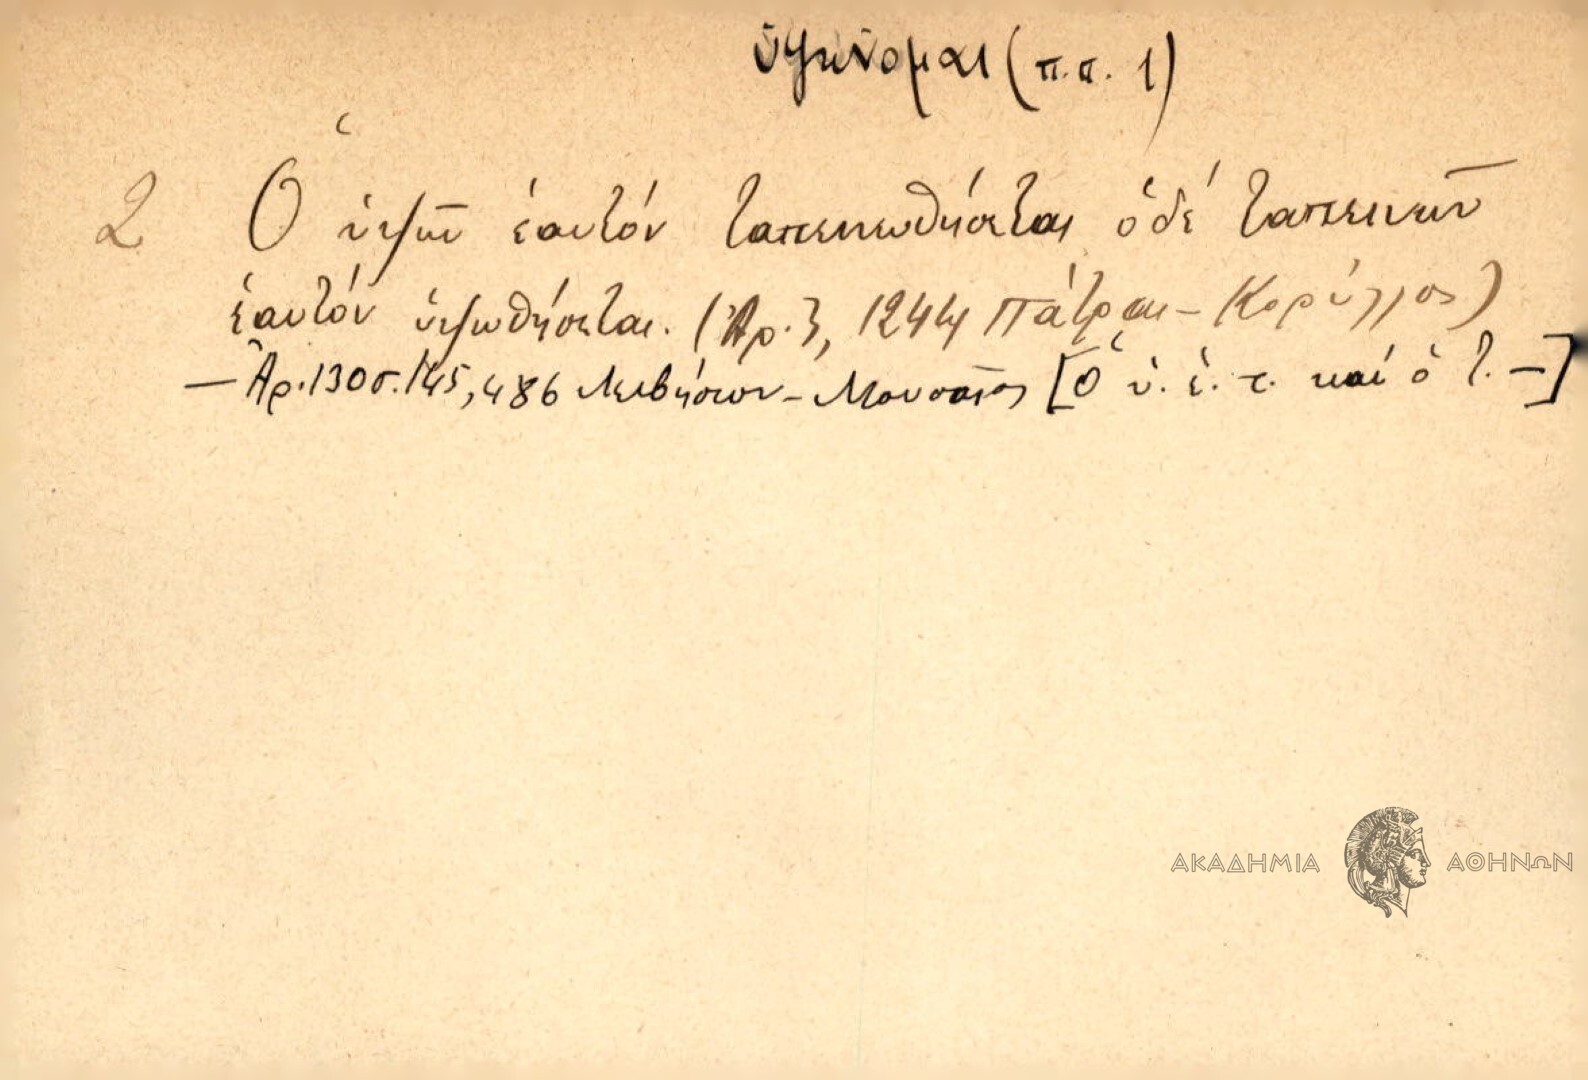 ὑψώνομαι (π.π. 1)
2 Ὁ ὑψῶν ἑαυτόν ταπεινωθήσεται ὁδέ ταπεινῶν
ἑαυτόν ὑψωθήσεται. (Ἀρ. 3, 1244 Πάτραι - Κορύλλος)
— Ἀρ. 130 σ. 145, 486 Λειβήσιον - Μουσαῖος [Ὁ ὑ. ἑ. τ. καί ὁ τ. —]
ΑΚΑΔΗΜΙΑ ΑΘΗΝΩΝ